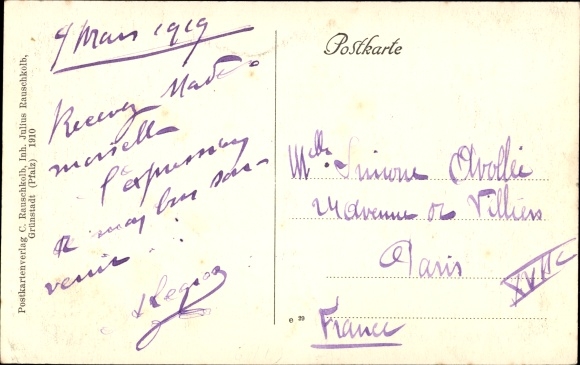 Postkartenverlag C. Rauschkolb, Inh. Julius Rauschkolb,
Grünstadt (Pfalz) 1910
9 Mars 1919
Recevez Made-
moiselle
l'expression
de mon bon sou-
venir
Postkarte
Mlle Simone
Avenue de Villiers
Paris
XVIIe
France
e 39